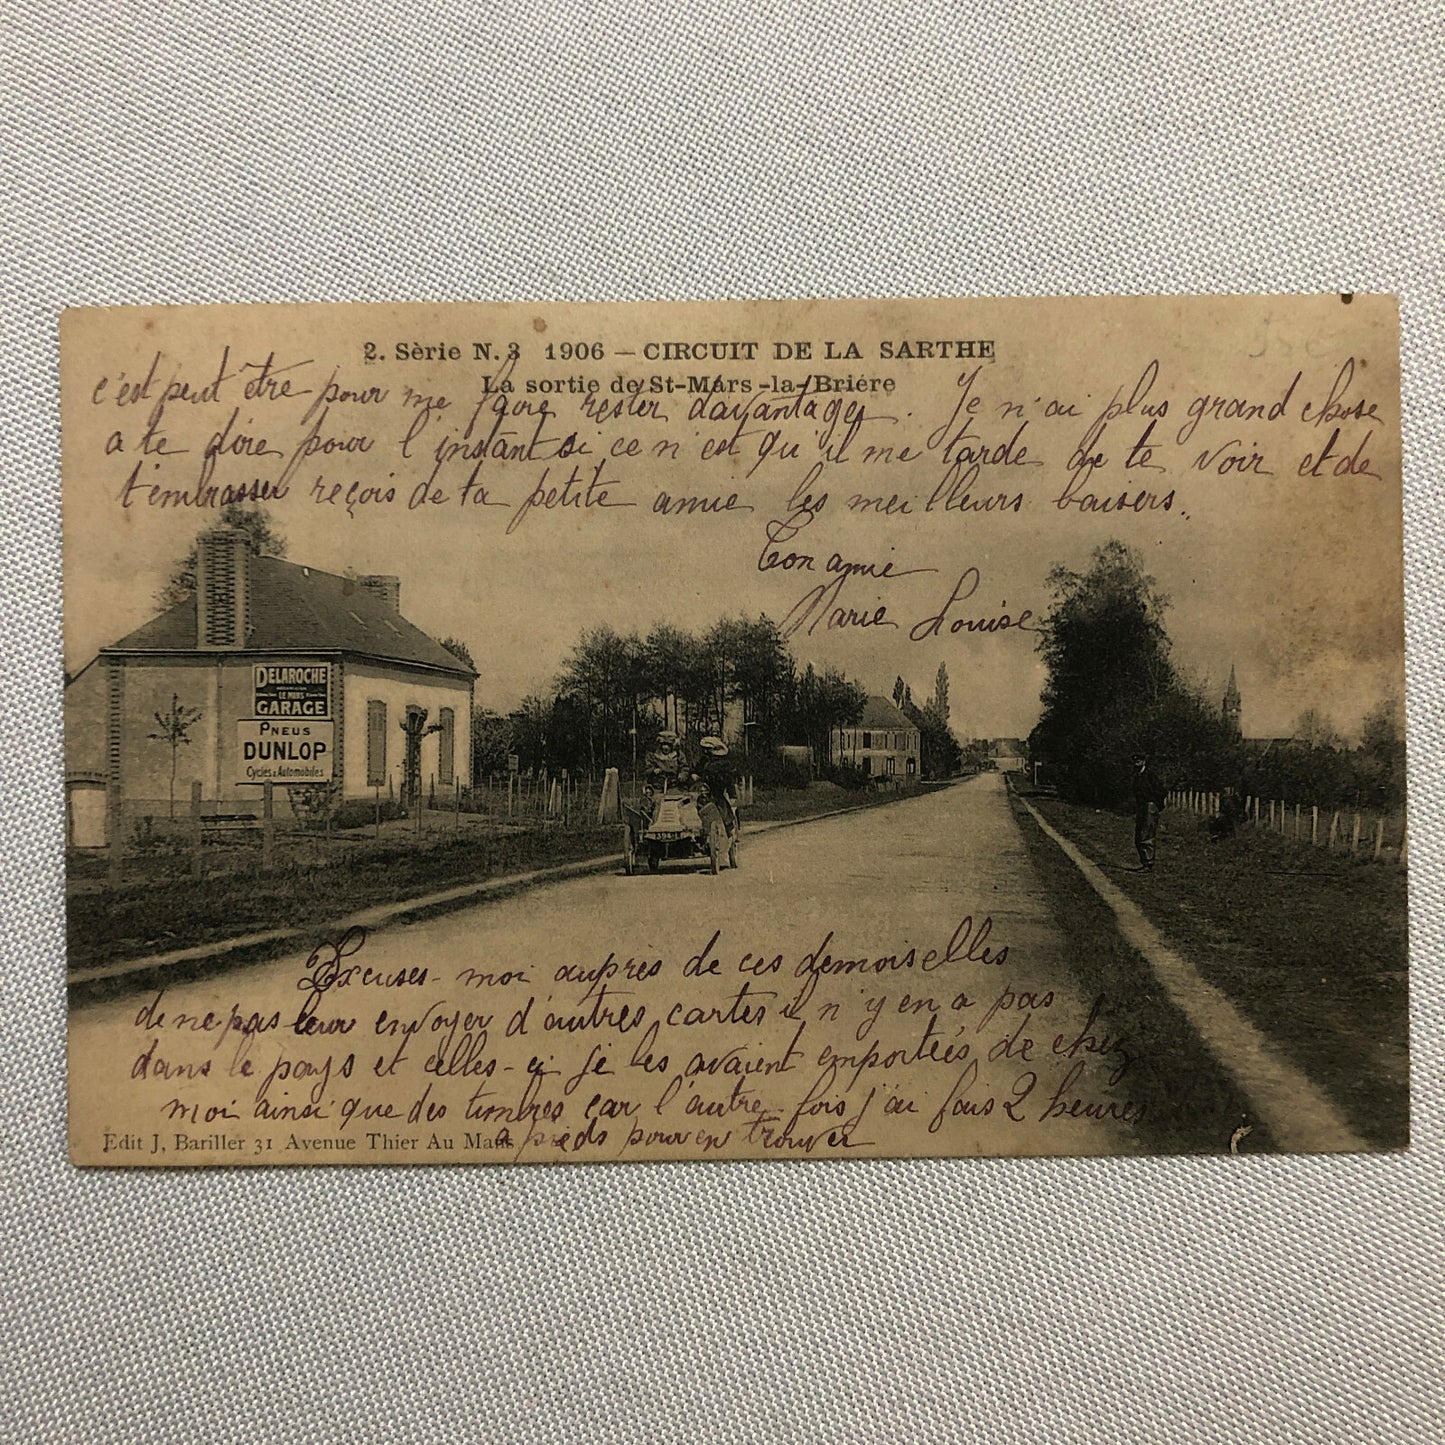 2. Sèrie N. 3 1906 — CIRCUIT DE LA SARTHE
La sortie de St-Mars-la-Briére
c'est peut être pour me faire rester davantages. Je n'ai plus grand chose
a te dire pour l'instant si ce n'est qu'il me tarde de te voir et de
t'embrasser reçois de ta petite amie les meilleurs baisers.
Ton amie
Marie Louise
DELAROCHE
LE MANS
GARAGE
PNEUS
DUNLOP
Cycles & Automobiles
Excuses-moi auprès de ces demoiselles
de ne pas leur envoyer d'autres cartes il n'y en a pas
dans le pays et celles-ci je les avaient emporteés de chez
moi ainsi que des timbres car l'autre fois j'ai fais 2 heures
a pieds pour en trouver
Edit J, Bariller 31 Avenue Thier Au Mans